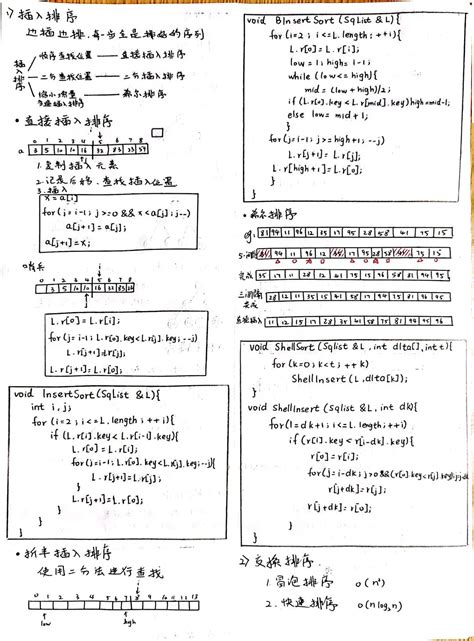 1) 插入排序
边插边排,每一步全是排好的序列
插入排序
顺序查找位置 —— 直接插入排序
二分查找位置 —— 二分插入排序
缩小增量 —— 希尔排序
• 直接插入排序
0 1 2 3 4 5 6 7 8
a 3 5 10 10 16 32 83 23 54
1. 复制插入元素
2. 记录后移,查找插入位置
3. 插入
x=a[i]
for(j=i-1; j>=0 && x<a[j]; j--)
a[j+1]=a[j];
a[j+1]=x;
0 1 2 3 4 5 6 7 8
L.r[0]=L.r[i];
for(j=i-1; L.r[0].key<L.r[j].key; --j)
L.r[j+1]=L.r[j];
L.r[j+1]=L.r[0];
void InsertSort(SqList &L){
int i,j;
for(i=2; i<=L.length; ++i){
if(L.r[i].key<L.r[i-1].key){
L.r[0]=L.r[i];
for(j=i-1; L.r[0].key<L.r[j].key; --j){
L.r[j+1]=L.r[j];
}
L.r[j+1]=L.r[0];
}
}
}
• 折半插入排序
使用二分法进行查找
0 1 2 3 4 5 6 7 8 9 10 11 12 13
low
high
void BInsertSort(SqList &L){
for(i=2; i<=L.length; ++i){
L.r[0]=L.r[i];
low=1; high=i-1;
while(low<=high){
mid=(low+high)/2;
if(L.r[0].key<L.r[mid].key)high=mid-1;
else low=mid+1;
}
for(j=i-1; j>=high+1; --j)
L.r[j+1]=L.r[j];
L.r[high+1]=L.r[0];
}
}
• 希尔排序
eg: 81 94 11 96 12 35 17 95 28 58 41 75 15
5-间隔
35 17 11 28 12 41 75 15 96 58 81 94 95
三间隔
28 12 11 35 15 41 58 17 94 75 81 96 95
直接插入 11 12 15 17 28 35 41 58 75 81 94 95 96
void ShellSort(Sqlist &L, int dlta[], int t){
for(k=0; k<t; ++k)
ShellInsert(L,dlta[k]);
}
void ShellInsert(SqList &L, int dk){
for(i=dk+1; i<=L.length; i++)
if(r[i].key<r[i-dk].key){
r[0]=r[i];
for(j=i-dk; j>0&&(r[0].key<r[j].key);j=j-dk)
r[j+dk]=r[j];
r[j+dk]=r[0];
}
}
2) 交换排序
1. 冒泡排序 O(n²)
2. 快速排序 O(nlog₂n)